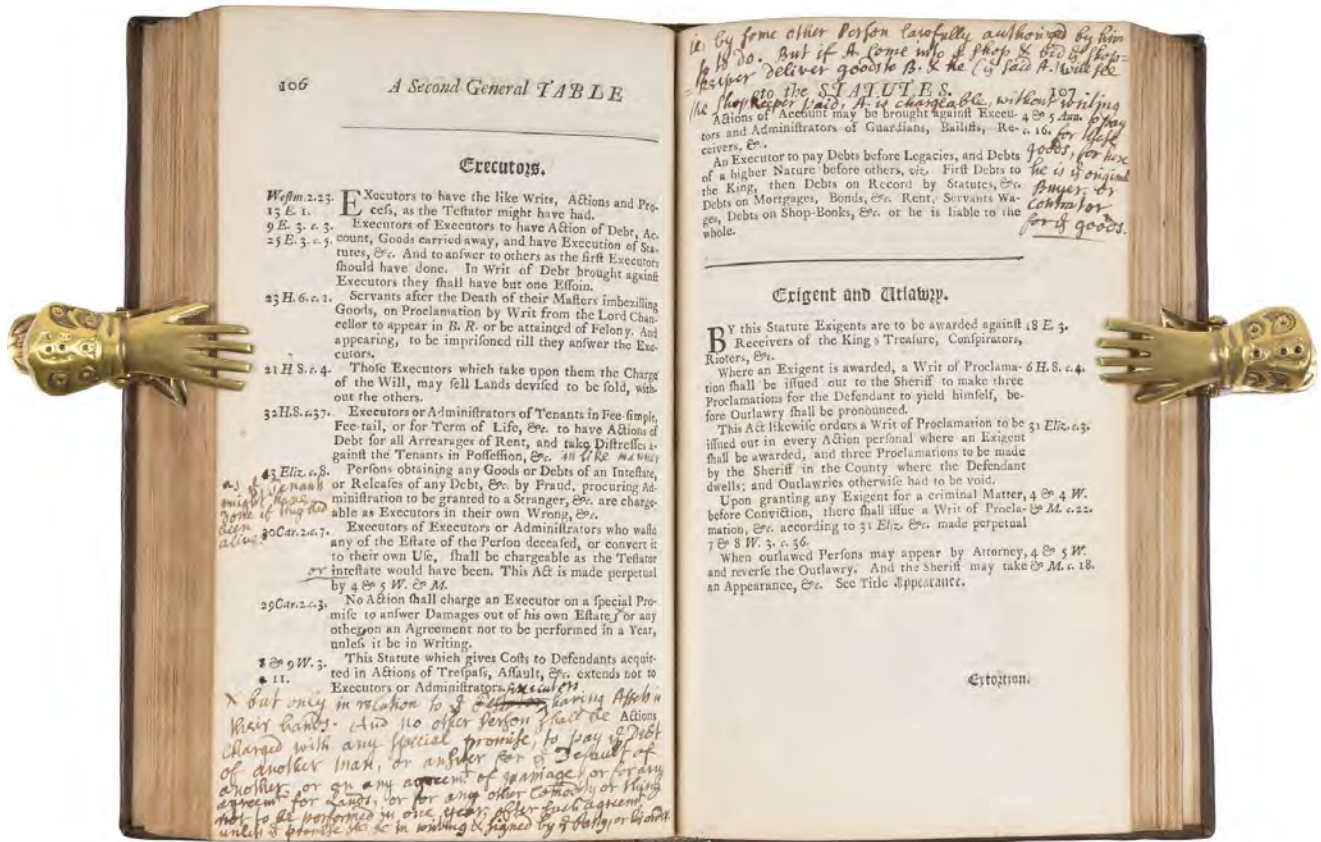 106
A Second General TABLE
Executors.
Westm. 2. 23.
13 E. 1.
EXecutors to have the like Writs, Actions and Pro-
ceſs, as the Teſtator might have had.
9 E. 3. c. 3.
25 E. 3. c. 5.
Executors of Executors to have Action of Debt, Ac-
count, Goods carried away, and have Execution of Sta-
tutes, &c. And to anſwer to others as the firſt Executors
ſhould have done. In Writ of Debt brought againſt
Executors they ſhall have but one Eſſoin.
23 H. 6. c. 1.
Servants after the Death of their Maſters imbezilling
Goods, on Proclamation by Writ from the Lord Chan-
cellor to appear in B. R. or be attainted of Felony. And
appearing, to be impriſoned till they anſwer the Exe-
cutors.
21 H 8. c. 4.
Thoſe Executors which take upon them the Charge
of the Will, may ſell Lands deviſed to be ſold, with-
out the others.
32 H. 8. c. 37.
Executors or Adminiſtrators of Tenants in Fee-ſimple,
Fee-tail, or for Term of Life, &c. to have Actions of
Debt for all Arrearages of Rent, and take Diſtreſſes a-
gainſt the Tenants in Poſſeſſion, &c. in like manner
as if Tenant
might have
done if they had
been
alive.
43 Eliz. c. 8.
Perſons obtaining any Goods or Debts of an Inteſtate,
or Releaſes of any Debt, &c. by Fraud, procuring Ad-
miniſtration to be granted to a Stranger, &c. are charge-
able as Executors in their own Wrong, &c.
30 Car. 2. c. 7.
Executors of Executors or Adminiſtrators who waſte
any of the Eſtate of the Perſon deceaſed, or convert it
to their own Uſe, ſhall be chargeable as the Teſtator
or inteſtate would have been. This Act is made perpetual
by 4 & 5 W. & M.
29 Car. 2. c. 3.
No Action ſhall charge an Executor on a ſpecial Pro-
miſe to anſwer Damages out of his own Eſtate, or any
other, on an Agreement not to be performed in a Year,
unleſs it be in Writing.
8 & 9 W. 3.
11.
This Statute which gives Coſts to Defendants acquit-
ted in Actions of Treſpaſs, Aſſault, &c. extends not to
Executors or Adminiſtrators.
Actions
executors
X but only in relation to having Assets in
their hands. And no other Person shall be
charged with any special promise, to pay ye Debt
of another man, or answer for ye Default of
another, or on any agreemt. of marriage, or for any
agreemt for Lands, or for any other Comodity or thing
not to be performed in one year after such agreemt.
unless ye promise be in writing & signed by ye Party, or his order
ie, by some other Person lawfully authorized by him
to do. But if A. come into a Shop & bid ye Shop=
=keeper deliver goods to B. & he (ie said A.) will see
the Shopkeeper paid, A. is chargeable, without writing
to pay
for these
goods, for here
he is ye original
Buyer, or
Contractor
for ye goods.
to the STATUTES.
107
Actions of Account may be brought againſt Execu-
tors and Adminiſtrators of Guardians, Bailiffs, Re-
ceivers, &c.
4 & 5 Ann.
c. 16.
An Executor to pay Debts before Legacies, and Debts
of a higher Nature before others, viz. Firſt Debts to
the King, then Debts on Record by Statutes, &c.
Debts on Mortgages, Bonds, &c. Rent, Servants Wa-
ges, Debts on Shop-Books, &c. or he is liable to the
whole.
Exigent and Utlawry.
BY this Statute Exigents are to be awarded againſt
Receivers of the King's Treaſure, Conſpirators,
Rioters, &c.
18 E. 3.
Where an Exigent is awarded, a Writ of Proclama-
tion ſhall be iſſued out to the Sheriff to make three
Proclamations for the Defendant to yield himſelf, be-
fore Outlawry ſhall be pronounced.
6 H. 8. c. 4.
This Act likewiſe orders a Writ of Proclamation to be
iſſued out in every Action perſonal where an Exigent
ſhall be awarded, and three Proclamations to be made
by the Sheriff in the County where the Defendant
dwells; and Outlawries otherwiſe had to be void.
31 Eliz. c. 3.
Upon granting any Exigent for a criminal Matter,
before Conviction, there ſhall iſſue a Writ of Procla-
mation, &c. according to 31 Eliz. &c. made perpetual
7 & 8 W. 3. c. 36.
4 & 4 W.
& M. c. 22.
When outlawed Perſons may appear by Attorney,
and reverſe the Outlawry. And the Sheriff may take
an Appearance, &c. See Title Appearance.
4 & 5 W.
& M. c. 18.
Extortion.